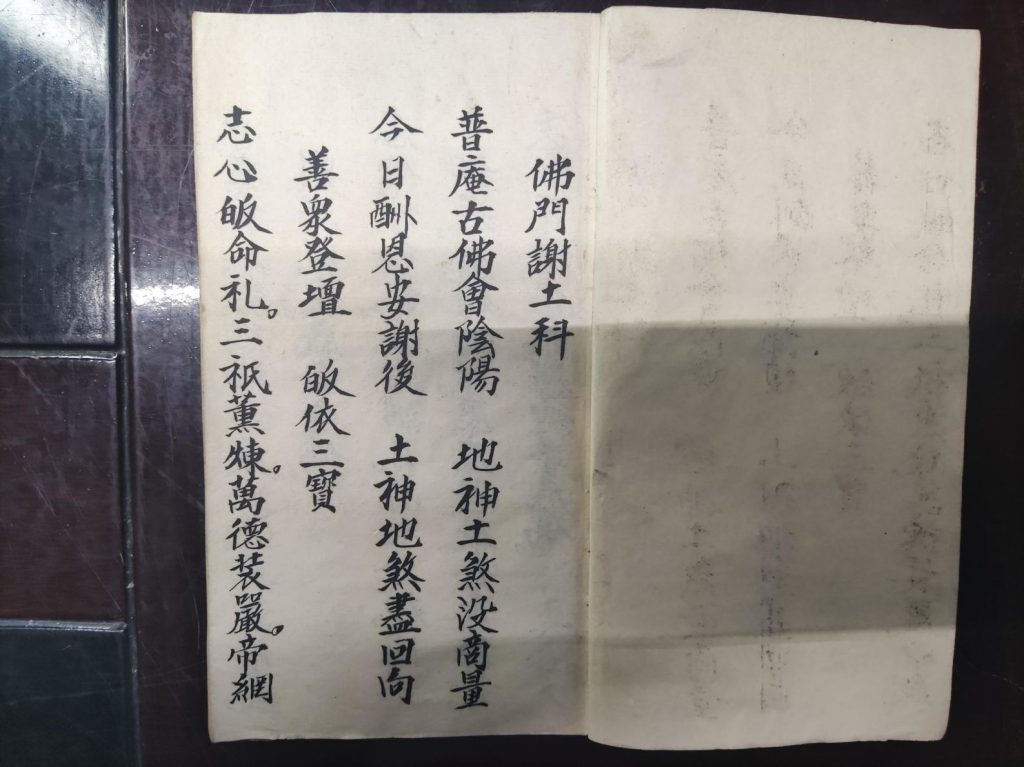 佛門謝土科
普庵古佛會陰陽 地神土煞没商量
今日酬恩安謝後 土神地煞盡回向
善眾登壇 皈依三寶
志心皈命礼。三祇薰煉。萬德装嚴。帝網